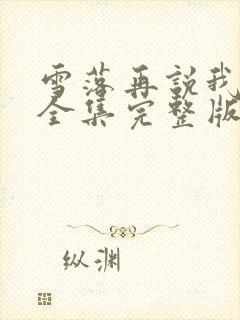 雪落再説我
全集完整版
纵渊